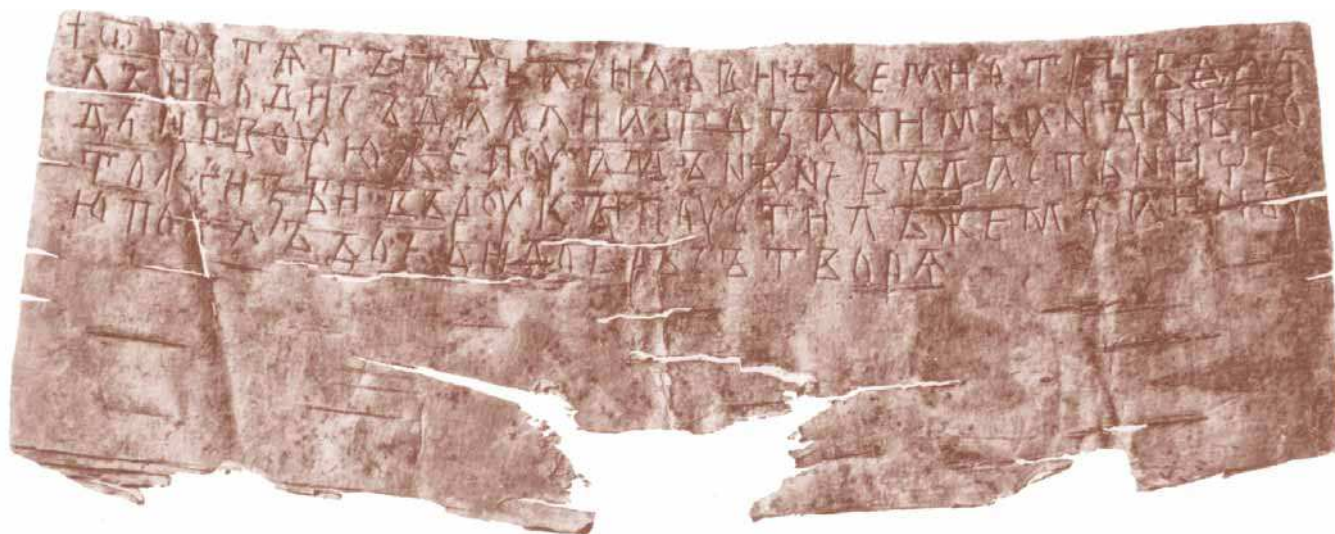 + ѿ гостѧтꙑ къ васильви ѥже ми отьць даꙗ
лъ и роди съдаꙗли а то за нимь а нꙑнѣ во
дѧ новоую женоу а мънѣ не въдасть ничь
тоже избивъ роукꙑ поустилъ же мѧ а иноу
ю поꙗлъ доеди добрѣ сътворѧ